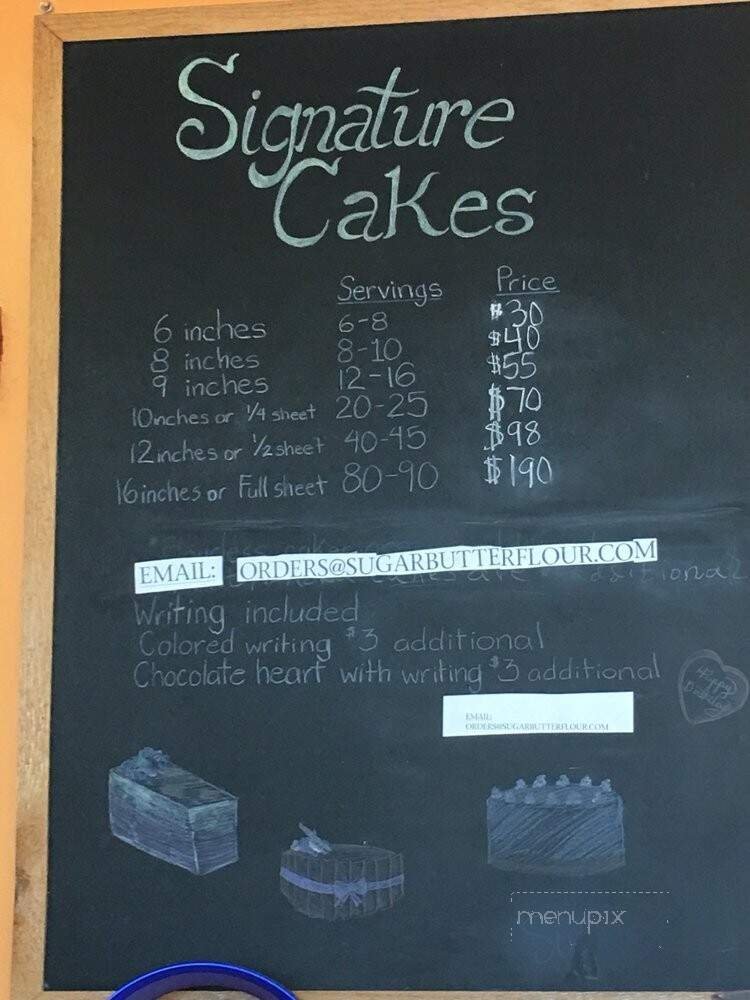 Signature
Cakes
Servings Price
6 inches 6-8 $30
8 inches 8-10 $40
9 inches 12-16 $55
10inches or 1/4 sheet 20-25 $70
12inches or 1/2 sheet 40-45 $98
16inches or Full sheet 80-90 $190
EMAIL: ORDERS@SUGARBUTTERFLOUR.COM
cakes are additional
Writing included
Colored writing $3 additional
Chocolate heart with writing $3 additional
Happy
Birthday
EMAIL:
ORDERS@SUGARBUTTERFLOUR.COM
menupix